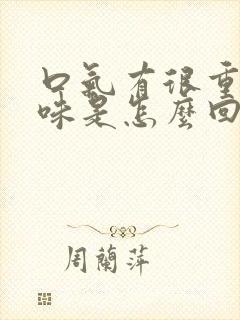 口氣有很重
味是怎麼回
周蘭萍